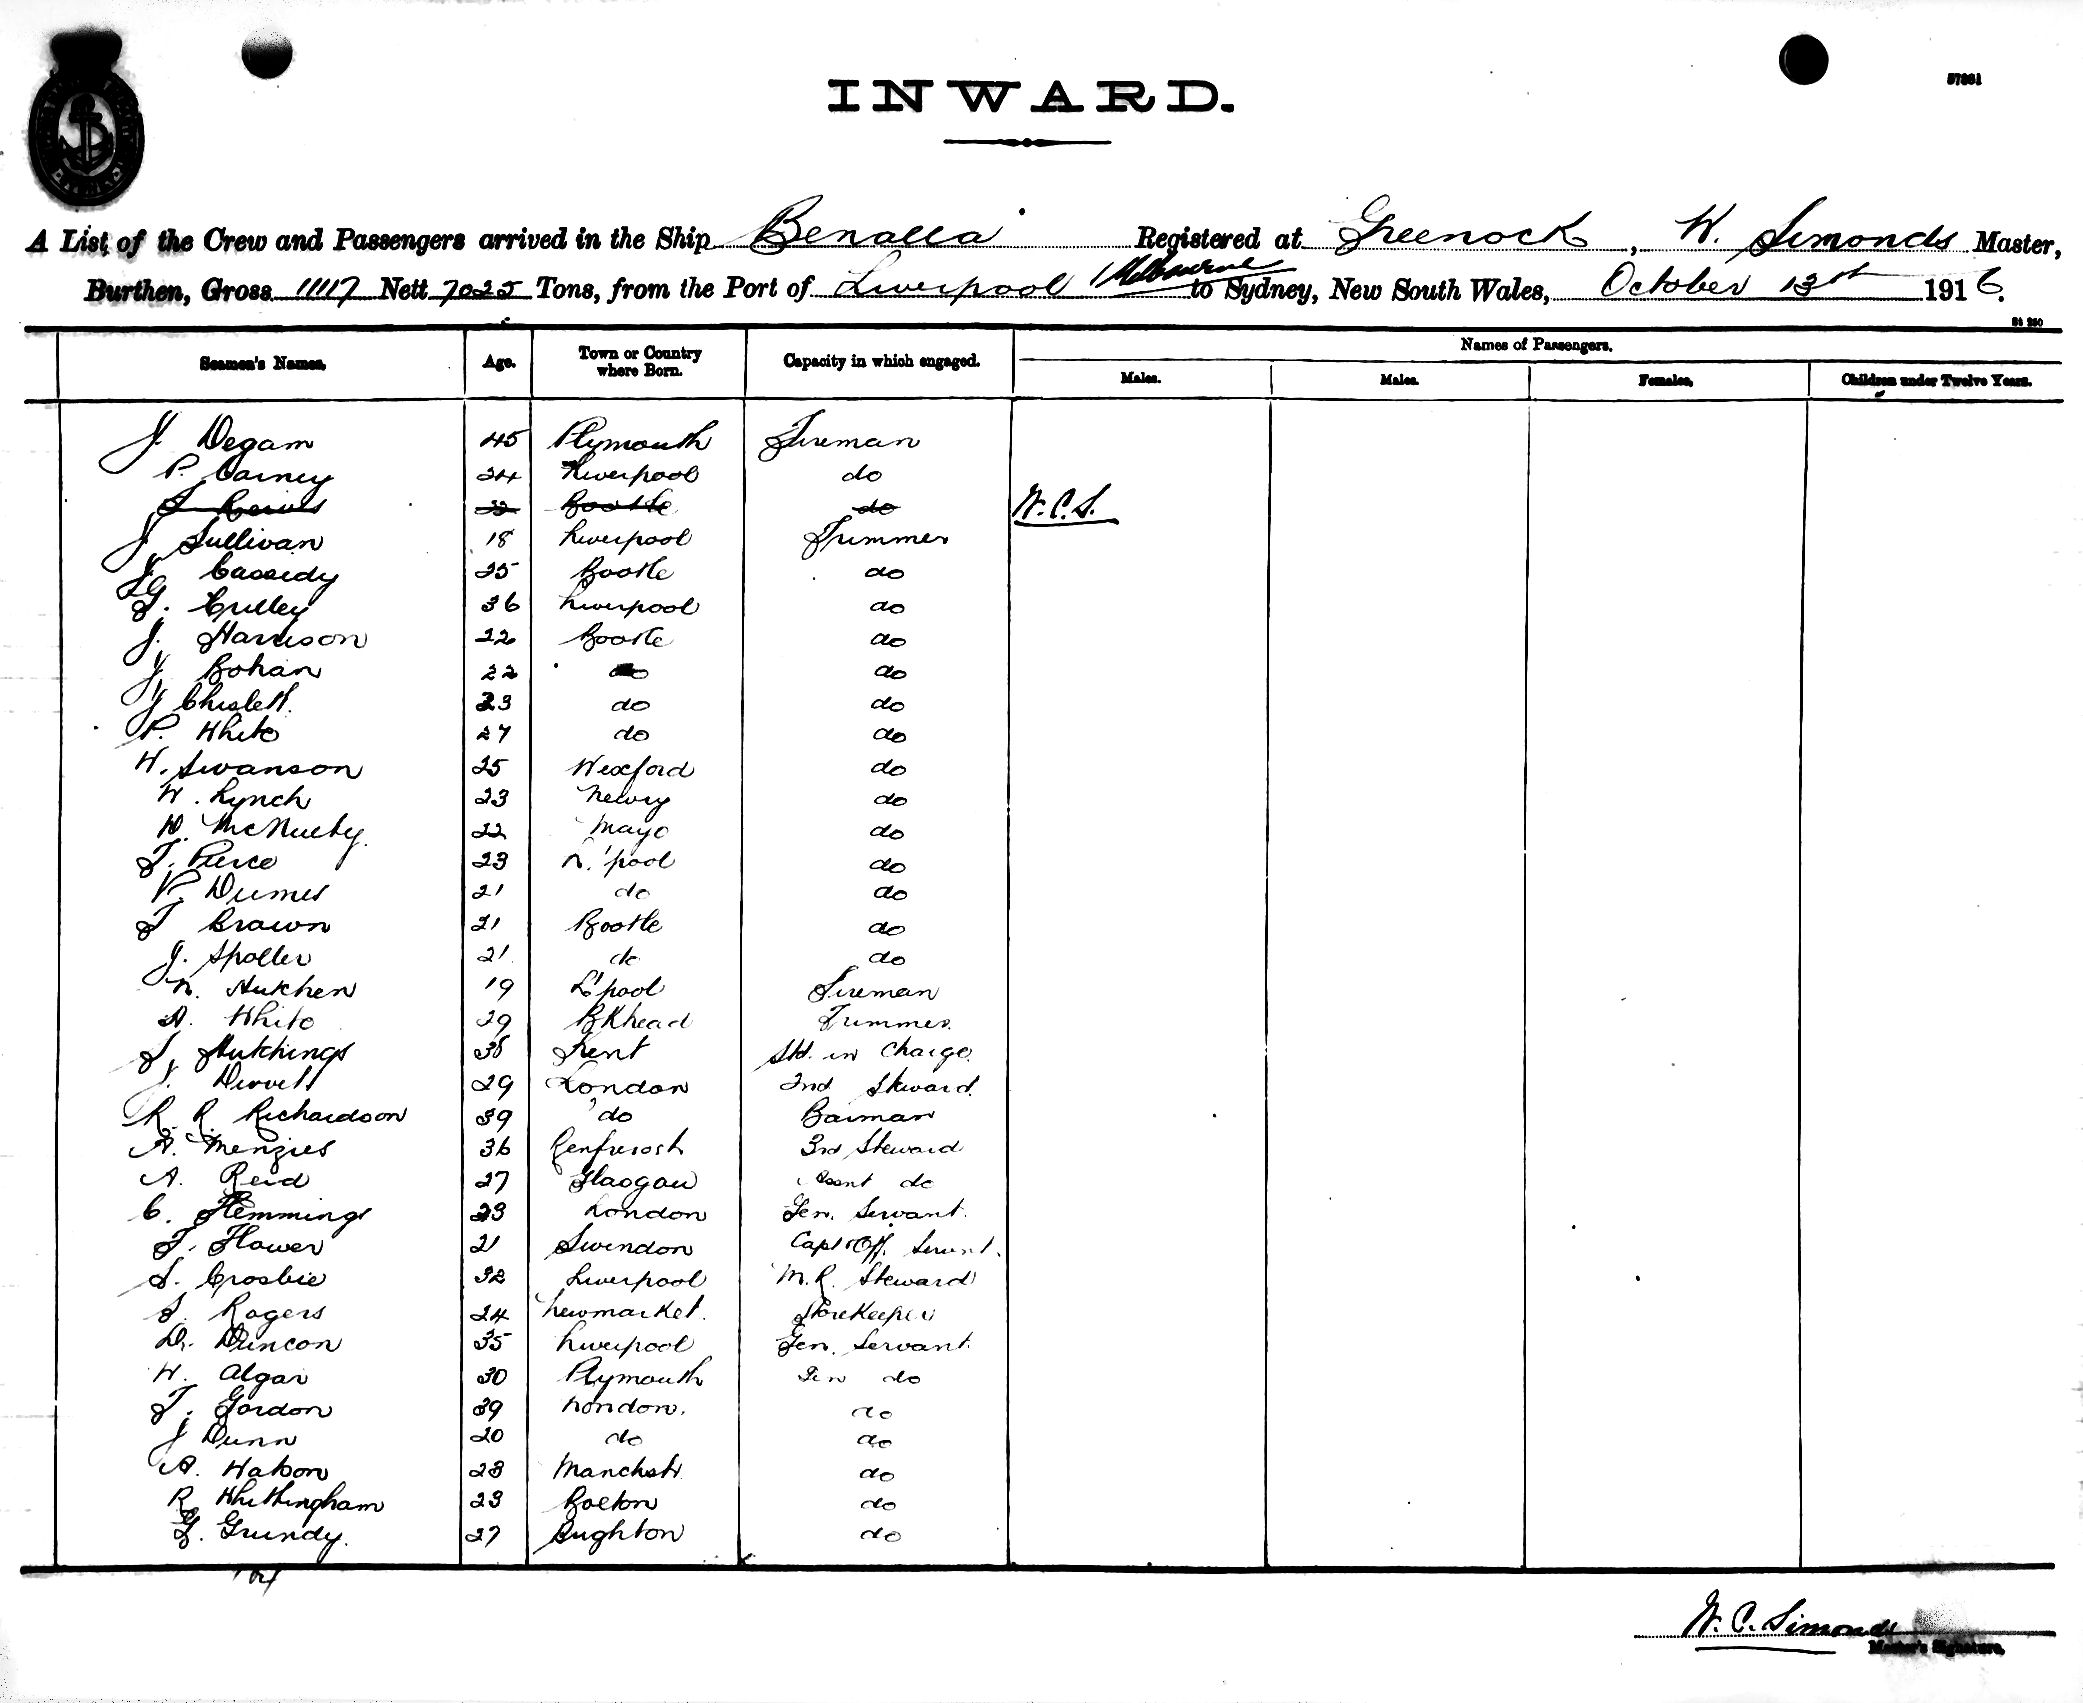 57331
INWARD.
A List of the Crew and Passengers arrived in the Ship Benalla Registered at Greenock, W. Simonds Master,
Burthen, Gross 11117 Nett 7025 Tons, from the Port of Liverpool / Melbourne to Sydney, New South Wales, October 13st 1916.
Seamen's Names. Age. Town or Country where Born. Capacity in which engaged. Names of Passengers.
Males. Males. Females. Children under Twelve Years.
J. Degam 45 Plymouth Fireman
P. Carney 24 Liverpool do
Bootle do W.C.S.
J. Sullivan 18 Liverpool Trimmer
J. Cassidy 25 Bootle do
Crilley 36 Liverpool do
J. Harrison 22 Bootle do
J. Bohan 22 do do
J Chislett. 23 do do
P. White 27 do do
W. Swanson 25 Wexford do
W. Lynch 23 Newry do
22 Mayo do
T. Pierce 23 L'pool do
P. Dumes 21 do do
T Brown 21 Bootle do
J. Spoller 21 do do
19 L'pool Fireman
A. White 29 BKhead Trimmer
Hutchings 38 Kent Std. in Charge.
29 London 2nd Steward.
R. R. Richardson 39 do Barman
A. Menzies 36 3rd Steward
A. Reid 27 Glasgow Assnt do
C. Flemmings 23 London Gen. Servant.
T. Flower 21 Swindon Capt & Off. Servant.
S. Crosbie 32 Liverpool M.R. Steward
S. Rogers 24 Newmarket. Storekeeper
D. Duncon 35 Liverpool Gen. Servant.
W. Algar 30 Plymouth Gen do
T. Gordon 39 London. do
J Dunn 20 do do
A. Watson 23 Manchstr. do
R Whittingham 23 Bolton do
G. Grundy. 27 Aughton do
W. C. Simonds
Master's Signature.